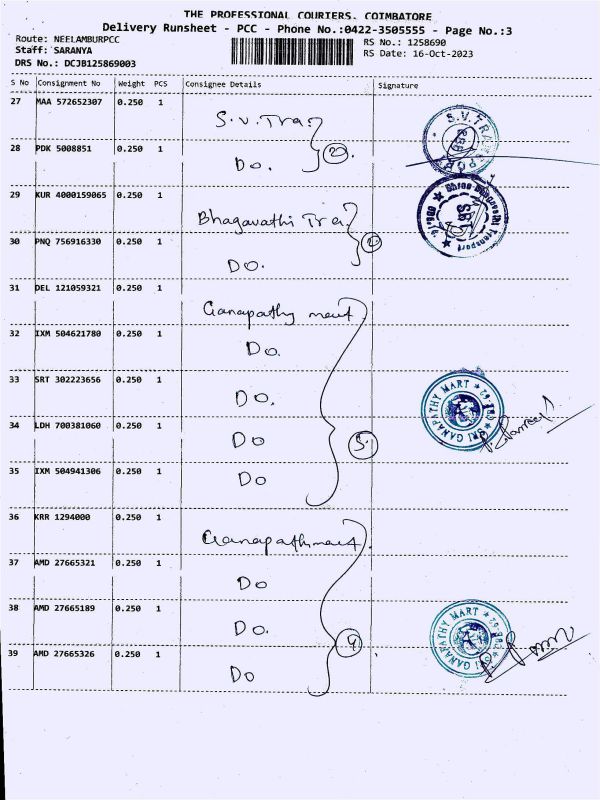 THE PROFESSIONAL COURIERS. COIMBATORE
Delivery Runsheet - PCC - Phone No.:0422-3505555 - Page No.:3
Route: NEELAMBURPCC
Staff: SARANYA
DRS No.: DCJB125869003
RS No.: 1258690
RS Date: 16-Oct-2023
S No Consignment No Weight PCS Consignee Details Signature
27 MAA 572652307 0.250 1 S.V.Tra.
28 PDK 5008851 0.250 1 Do.
S.V.TRA
29 KUR 4000159065 0.250 1 Bhagavathi Tra.
30 PNQ 756916330 0.250 1 Do. 2
Shree Bhagavathi Transport
31 DEL 121059321 0.250 1 Ganapathy mart
32 IXM 504621780 0.250 1 Do.
33 SRT 302223656 0.250 1 Do.
34 LDH 700381060 0.250 1 Do 5.
35 IXM 504941306 0.250 1 Do
SRI GANAPATHY MART
36 KRR 1294000 0.250 1 Ganapathy mart.
37 AMD 27665321 0.250 1 Do
38 AMD 27665189 0.250 1 Do. 4
39 AMD 27665326 0.250 1 Do
SRI GANAPATHY MART